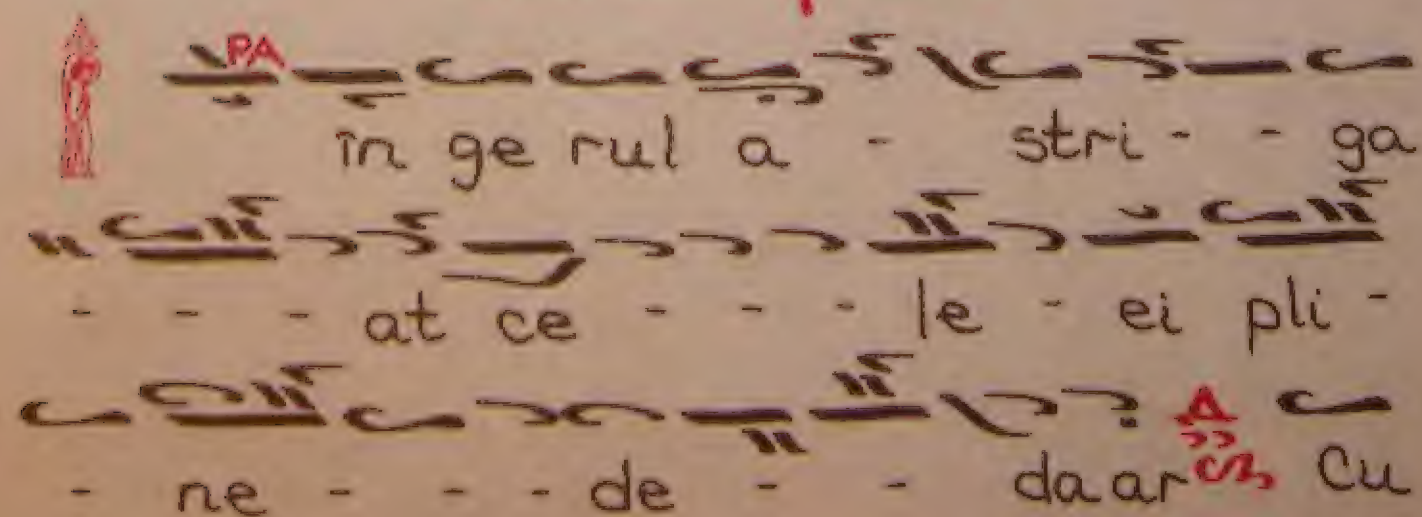 PA
în ge rul a - stri - - ga
- - - at ce - - - le - ei pli -
- ne - - - de - - da ar Cu